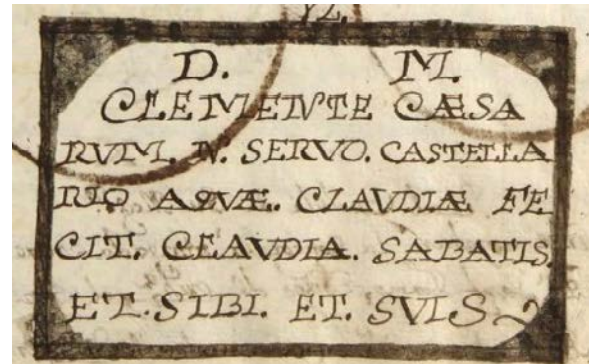 D. M.
CLEMENTE CÆSA
RVM. N. SERVO. CASTELLA
RIO AQVÆ. CLAVDIÆ FE
CIT. CLAVDIA. SABATIS.
ET. SIBI. ET. SVIS